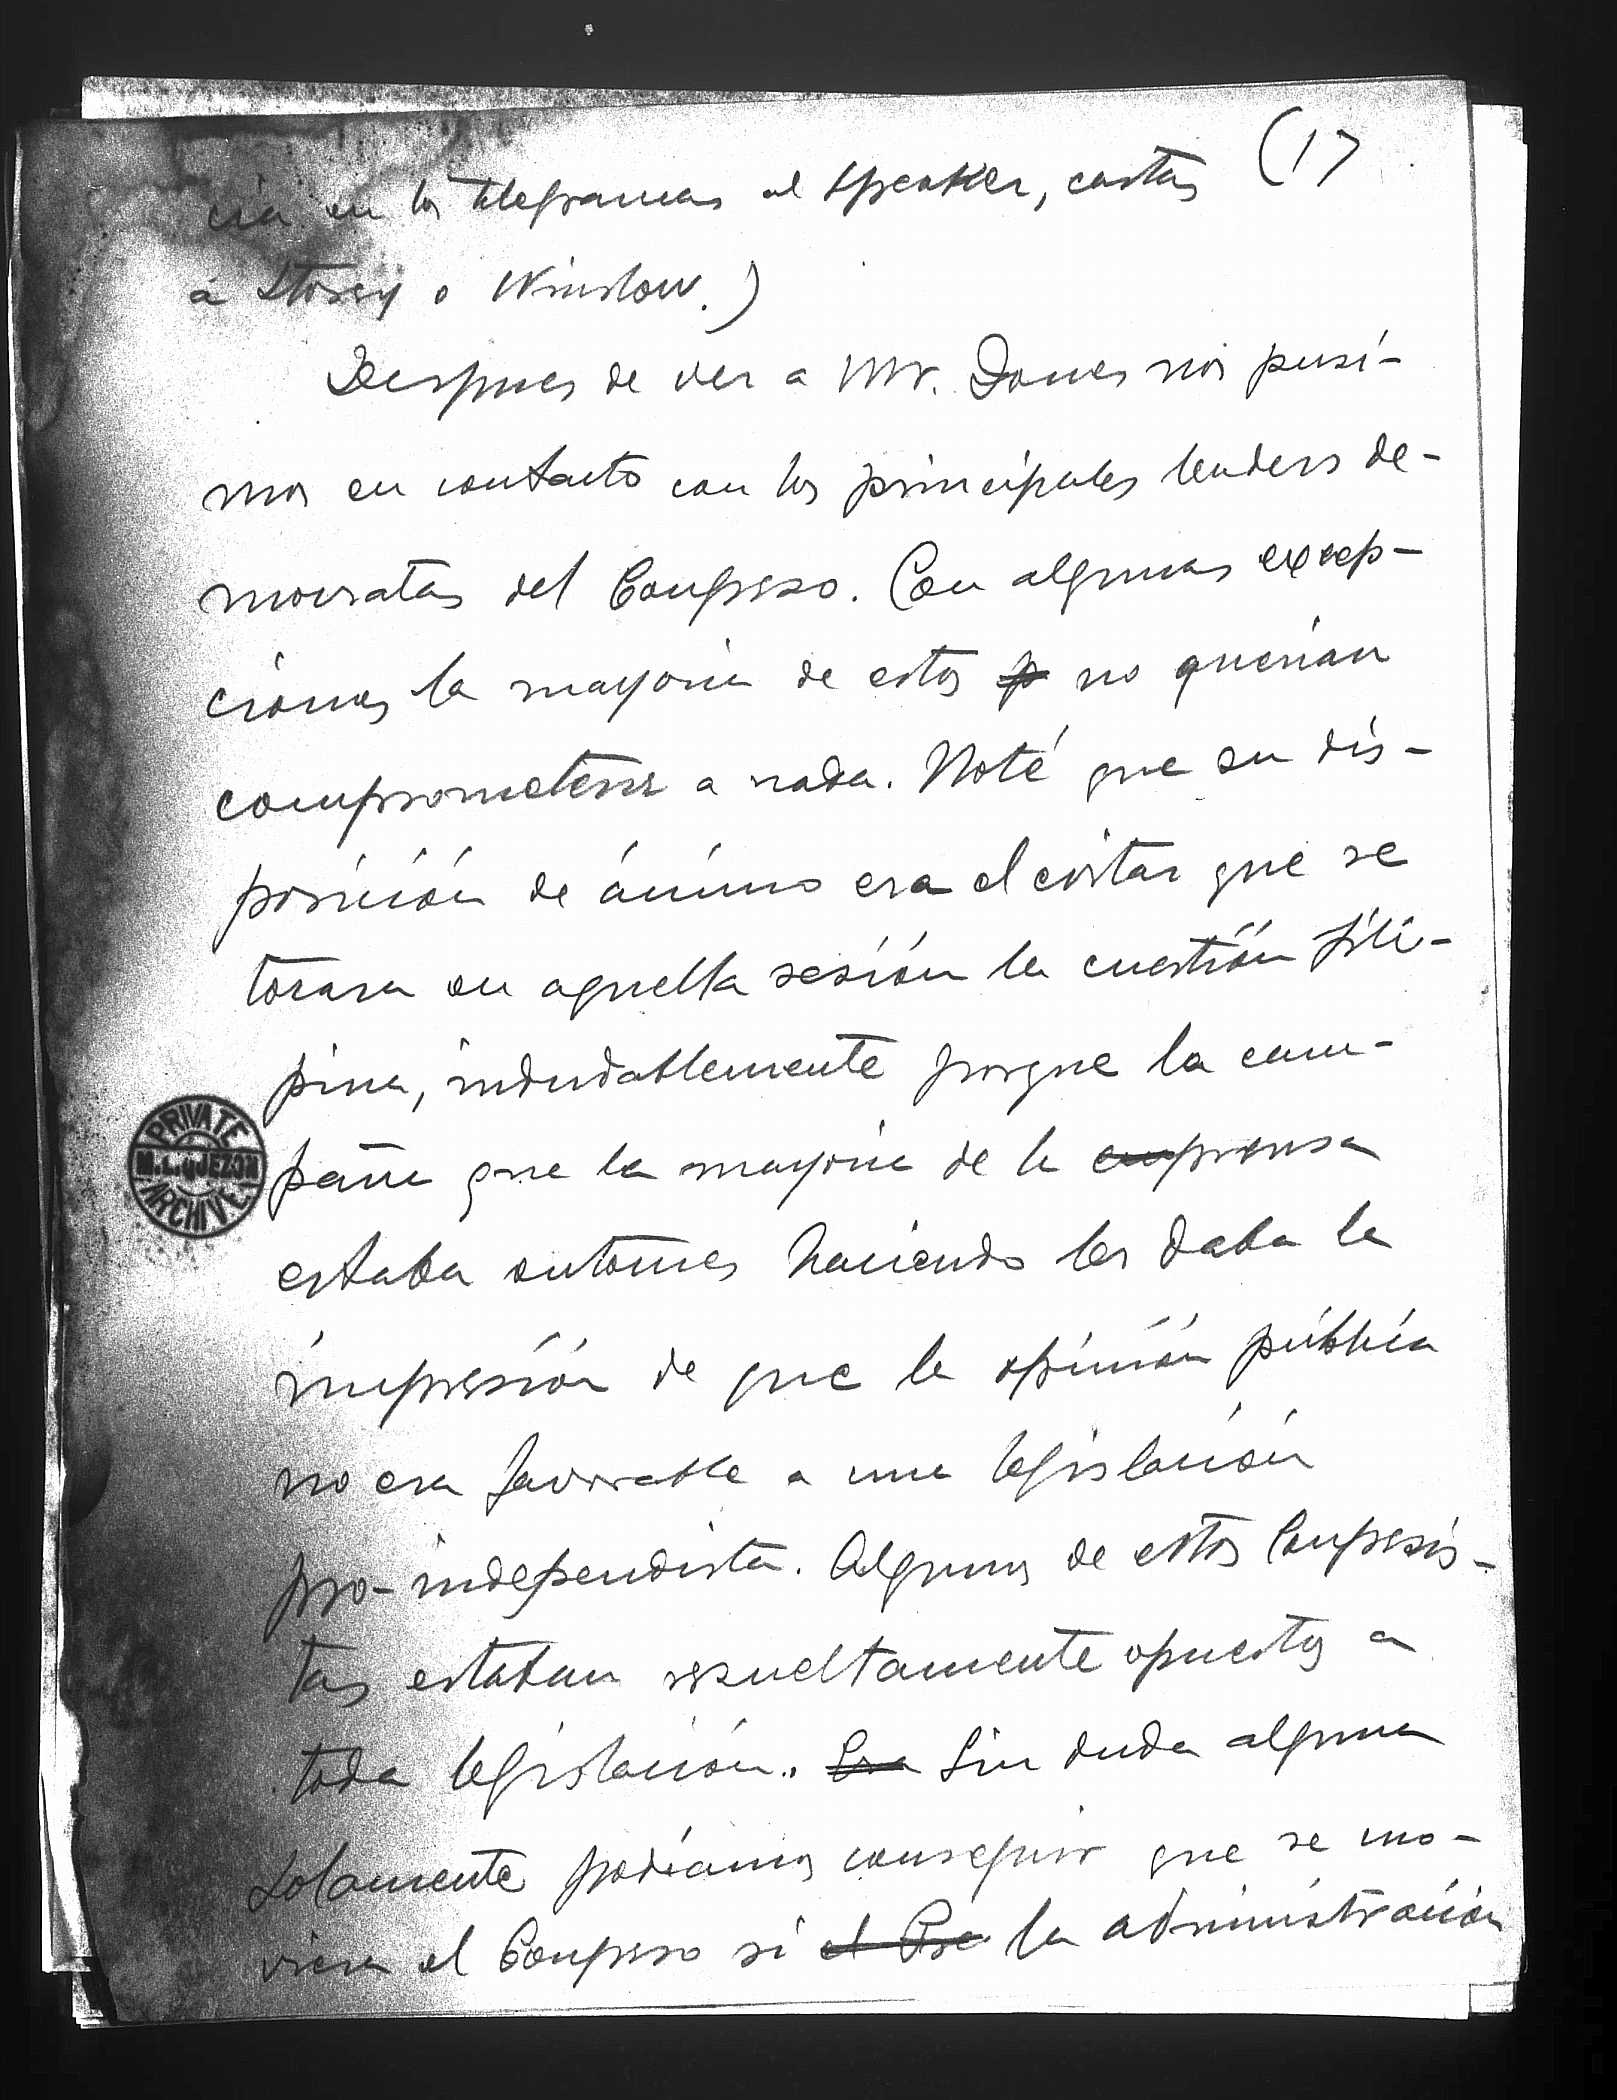 (17
cia en los telegramas al Speaker, cartas
a Storey o Winslow.)
Despues de ver a Mr. Jones nos pusi-
mos en contacto con los principales leaders de-
mocratas del Congreso. Con algunas excep-
ciones la mayoria de estos p no querian
comprometerse a nada. Noté que su dis-
posición de ánimo era el evitar que se
tocara en aquella sesión la cuestión fili-
pina, indudablemente porque la cam-
paña que la mayoria de la emprensa
estaba entonces haciendo les daba la
impresión de que la opinión pública
no era favorable a una legislación
pro-independista. Algunos de estos Congresis-
tas estaban resueltamente opuestos a
toda legislación. Era Sin duda alguna
solamente podíamos conseguir que se mo-
viera el Congreso si el Pre la administración
PRIVATE
M.L. QUEZON
ARCHIVE